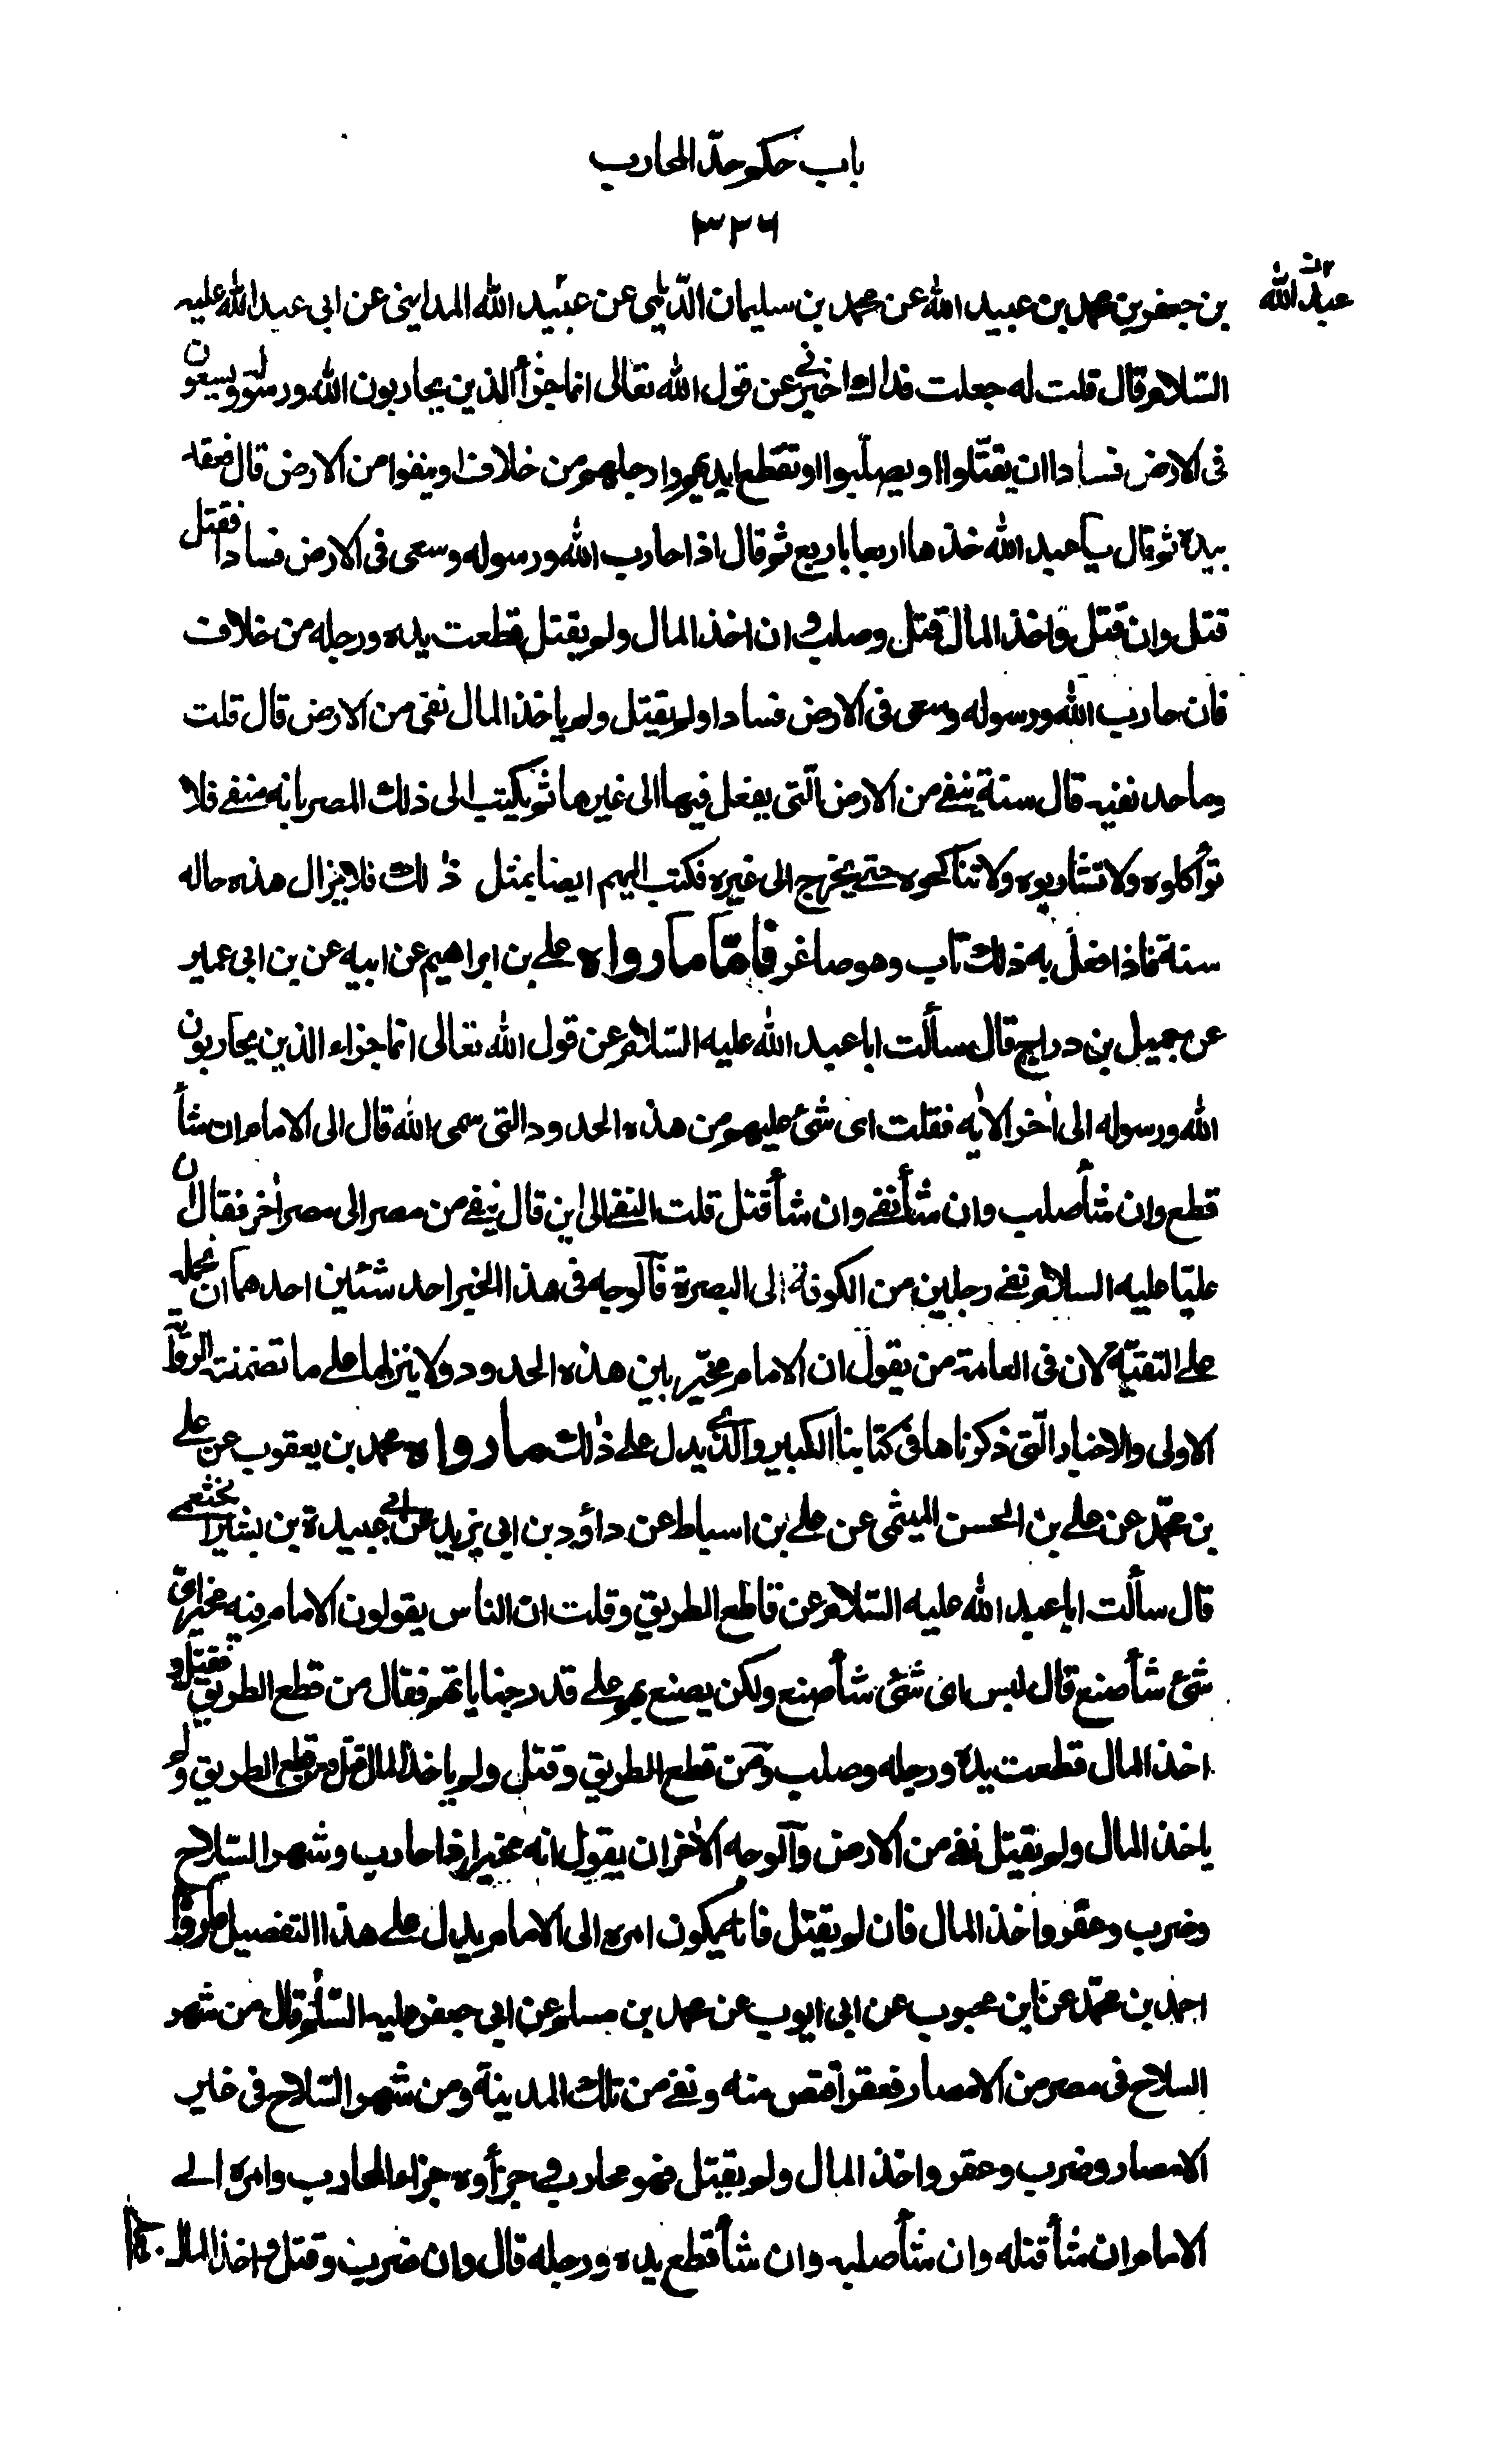 باب حكم حدّ المحارب
٣٢٦
عبد الله
بن جعفر بن محمد بن عبيد الله عن محمد بن سليمان الدّيلمي عن عبيد الله المدايني عن ابي عبد الله عليه
السّلام قال قلت له جعلت فداك اخبرني عن قول الله تعالى انما جزأ الذين يحاربون الله ورسوله ويسعون
فى الارض فسادا ان يقتّلوا او يصلّبوا او تقطع ايديهم وارجلهم من خلاف او ينفوا من الارض قال فعقد
بيده ثم قال يا عبد الله خذها اربعا باربع ثم قال اذا حارب الله ورسوله وسعى فى الارض فسادا فقتل
قتل وان قتل واخذ المال قتل وصلب وان اخذ المال ولم يقتل قطعت يده ورجله من خلاف
فان حارب الله ورسوله وسعى فى الارض فسادا ولم يقتل ولم ياخذ المال نفى من الارض قال قلت
وما حد نفيه قال سنة ينفى من الارض الّتى يفعل فيها الى غيرها ثم يكتب الى ذلك المصر بانه منفى فلا
تؤاكلوه ولا تشاربوه ولا تناكحوه حتى يخرج الى غيره فكتب اليهم ايضا بمثل ذلك فلا يزال هذه حاله
سنة فاذا فعل به ذلك تاب وهو صاغر فامّا ما رواه على بن ابراهيم عن ابيه عن بن ابى عمير
عن جميل بن دراج قال سألت ابا عبد الله عليه السّلام عن قول الله تعالى انما جزاء الذين يحاربون
الله ورسوله الى اخر الاية فقلت اى شئ عليهم من هذه الحدود التى سمى الله قال الى الامام ان شأ
قطع وان شأ صلب وان شأ نفى وان شأ قتل قلت النفى الى اين قال ينفى من مصر الى مصر اخر فقال ان
عليّا عليه السلام نفى رجلين من الكوفة الى البصرة فالوجه فى هذا الخبر احد شئين احدهما ان نحمله
على التقيّة لان فى العامة من يقول ان الامام مخيّر بين هذه الحدود ولا ينزلها على ما تضمنته الرواية
الاولى والاخبار الّتى ذكرناها فى كتابنا الكبير والّذي يدل على ذلك ما رواه محمد بن يعقوب عن على
بن محمّد عن على بن الحسن الميثمى عن على بن اسباط عن داؤد بن ابى يزيد عن ابى عبيدة بن بشير الخثعمى
قال سألت ابا عبد الله عليه السّلام عن قاطع الطريق وقلت ان الناس يقولون الامام فيه مخير اىّ
شئ شأ صنع قال ليس اى شئ شأ صنع ولكن يصنع بهم على قدر جناياتهم فقال من قطع الطريق فقتل و
اخذ المال قطعت يده ورجله وصلب ومن قطع الطريق وقتل ولم ياخذ المال قتل ومن قطع الطريق ولم
ياخذ المال ولم يقتل نفى من الارض والوجه الاخر ان يقول انه مخير اذا حارب وشهر السّلاح
وضرب وعقر واخذ المال فان لم يقتل فانه يكون امره الى الامام يدل على هذا التفصيل ما رواه
احمد بن محمّد عن ابن محبوب عن ابى ايوب عن محمد بن مسلم عن ابى جعفر عليه السّلام قال من شهر
السلاح فى مصر من الامصار فعقر اقتص منه ونفى من تلك المدينة ومن شهر السّلاح فى غير
الامصار وضرب وعقر واخذ المال ولم يقتل فهو محارب فجزأوه جزاء المحارب وامره الى
الامام ان شأ قتله وان شأ صلبه وان شأ قطع يده ورجله قال وان ضرب وقتل واخذ المال